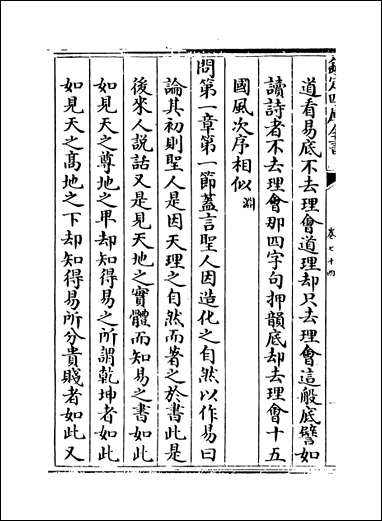 欽定四庫全書
卷七十四
道看易底不去理會道理却只去理會這般底譬如
讀詩者不去理會那四字句押韻底却去理會十五
國風次序相似淵
問第一章第一節蓋言聖人因造化之自然以作易曰
論其初則聖人是因天理之自然而著之於書此是
後來人說話又是見天地之實體而知易之書如此
如見天之尊地之卑却知得易之所謂乾坤者如此
如見天之高地之下却知得易所分貴賤者如此又